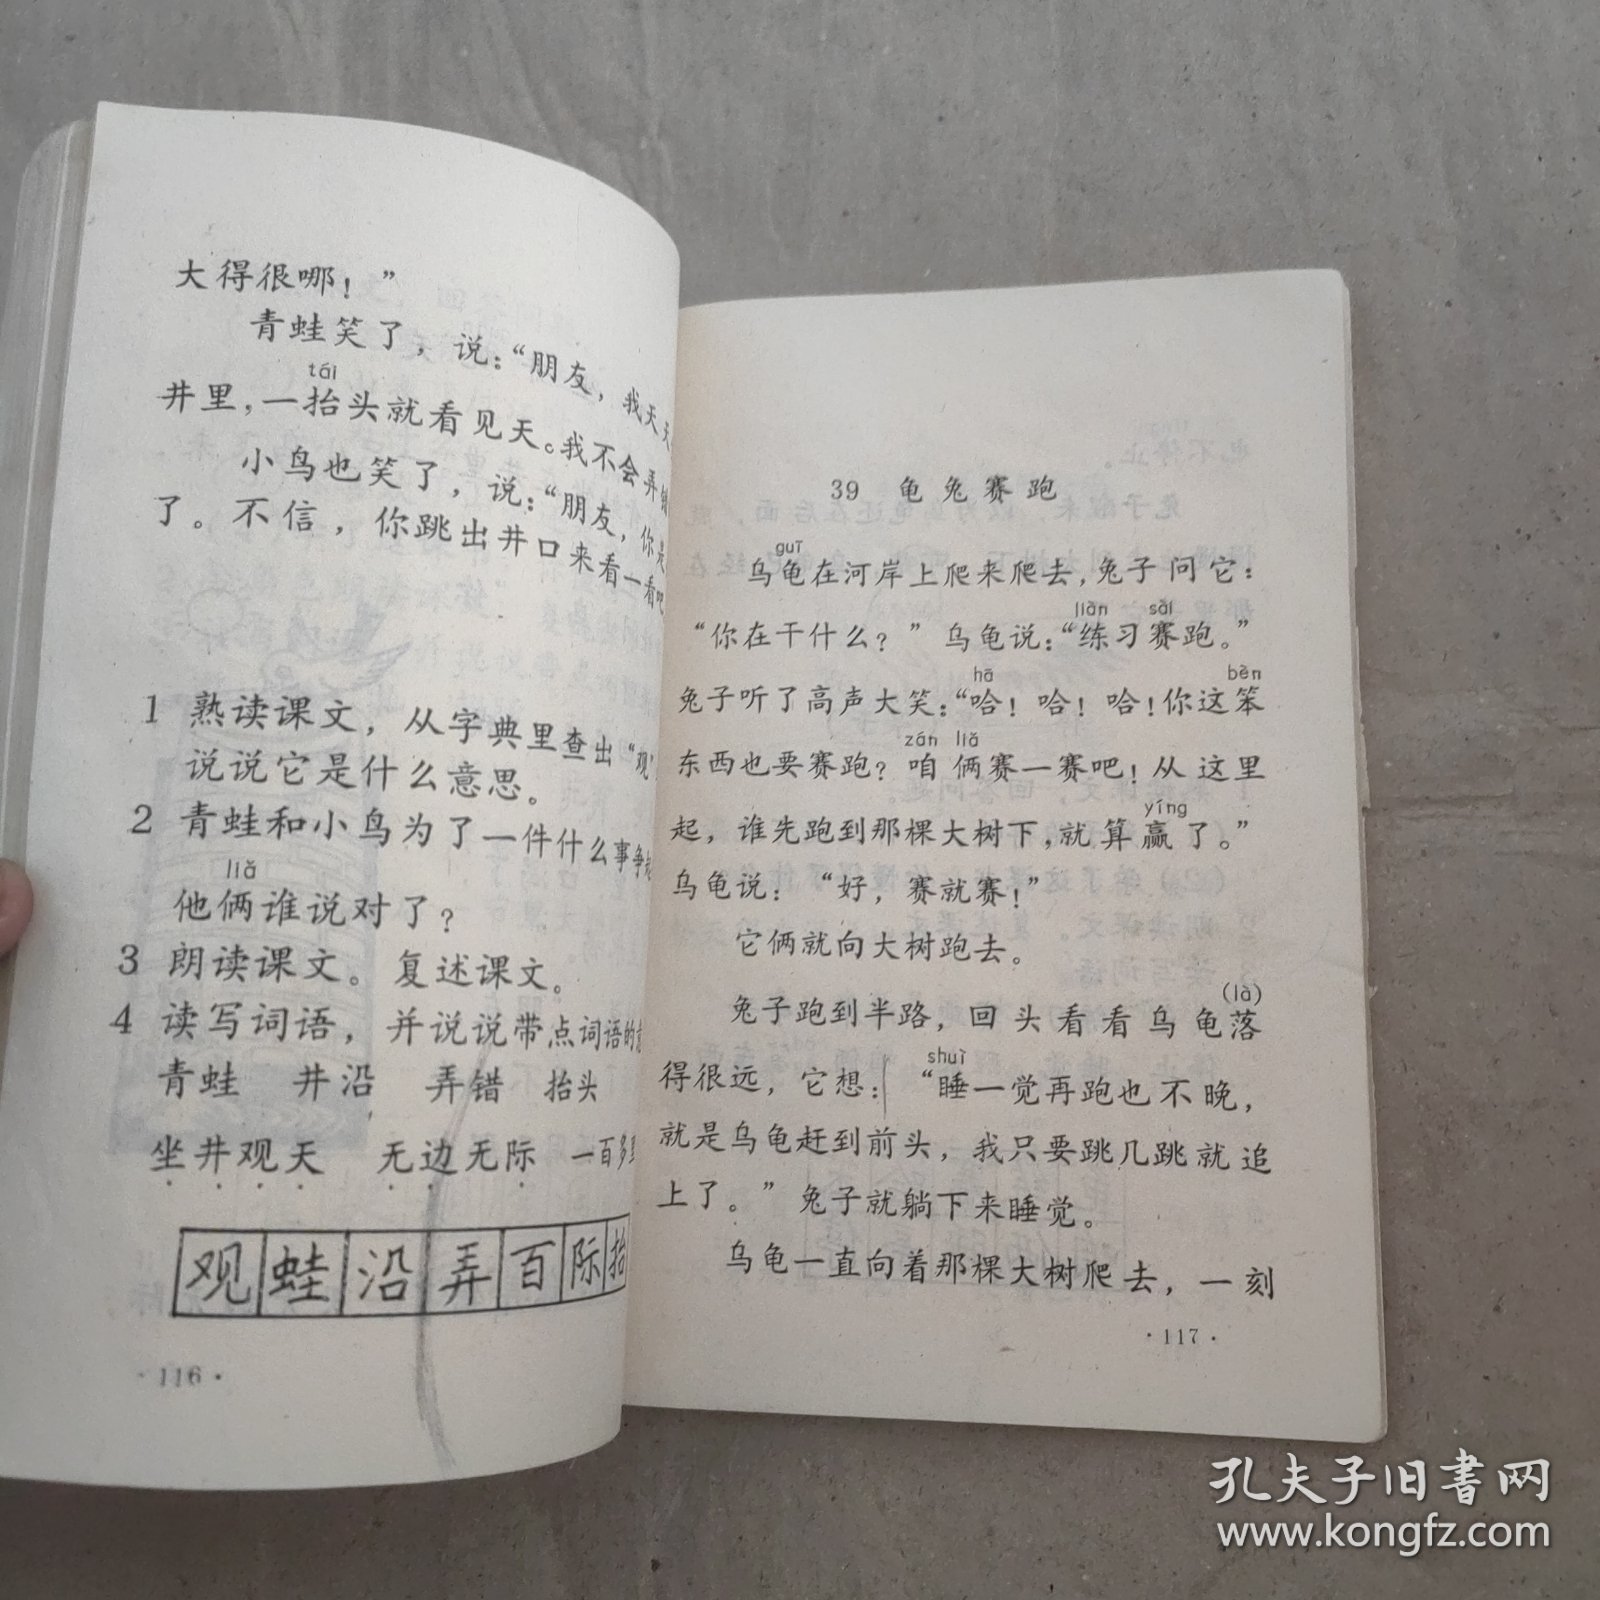 大得很哪！”
青蛙笑了，说：“朋友，我天天
tái
井里，一抬头就看见天。我不会弄错
小鸟也笑了，说：“朋友，你是
了。不信，你跳出井口来看一看吧
1 熟读课文，从字典里查出“观”
说说它是什么意思。
2 青蛙和小鸟为了一件什么事争
liǎ
他俩谁说对了？
3 朗读课文。复述课文。
4 读写词语，并说说带点词语的意
青蛙 井沿 弄错 抬头
坐井观天 无边无际 一百多里
观 蛙 沿 弄 百 际 抬
·116·
39 龟兔赛跑
guī
乌龟在河岸上爬来爬去，兔子问它：
liàn sài
“你在干什么？”乌龟说：“练习赛跑。”
hā bèn
兔子听了高声大笑：“哈！哈！哈！你这笨
zán liǎ
东西也要赛跑？咱俩赛一赛吧！从这里
yíng
起，谁先跑到那棵大树下，就算赢了。”
乌龟说：“好，赛就赛！”
它俩就向大树跑去。
(là)
兔子跑到半路，回头看看乌龟落
shuì
得很远，它想：“睡一觉再跑也不晚，
就是乌龟赶到前头，我只要跳几跳就追
上了。”兔子就躺下来睡觉。
乌龟一直向着那棵大树爬去，一刻
·117·
孔夫子旧书网
www.kongfz.com